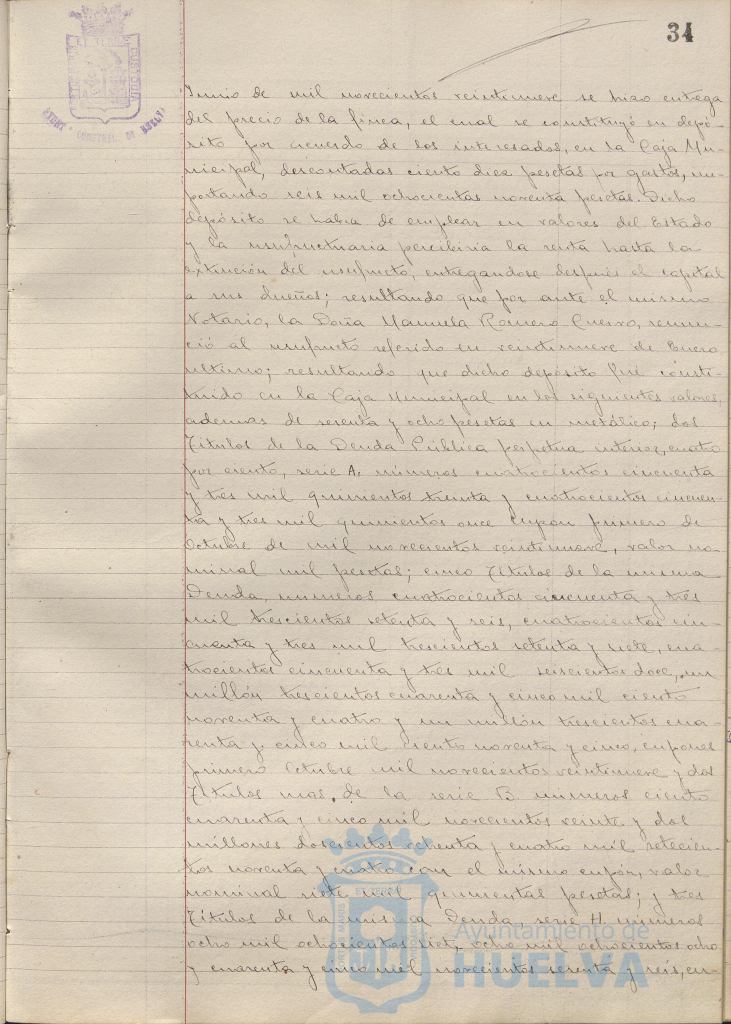 34
Junio de mil novecientos veintinueve se hizo entrega
del precio de la finca, el cual se constituyó en depó-
sito por acuerdo de los interesados, en la Caja Mu-
nicipal, descontadas ciento diez pesetas por gastos, im-
portando seis mil ochocientas noventa pesetas. Dicho
depósito se habia de emplear en valores del Estado
y la usufructuaria percibiria la renta hasta la
extinción del usufructo, entregandose después el capital
a sus dueños; resultando que por ante el mismo
Notario, la Doña Manuela Romero Cuervo, renun-
ció al usufructo referido en veintinueve de Enero
ultimo; resultando que dicho depósito fué consti-
tuido en la Caja Municipal en los siguientes valores,
ademas de sesenta y ocho pesetas en metálico; dos
Titulos de la Deuda Pública perpetua interior, cuatro
por ciento, serie A. números cuatrocientos cincuenta
y tres mil quinientos treinta y cuatrocientos cincuen-
ta y tres mil quinientos once cupon primero de
Octubre de mil novecientos veintinueve, valor no-
minal mil pesetas; cinco Titulos de la misma
Deuda, numeros cuatrocientos cincuenta y tres
mil trescientos setenta y seis, cuatrocientos cin-
cuenta y tres mil trescientos setenta y siete, cua-
trocientos cincuenta y tres mil seiscientos doce, un
millón trescientos cuarenta y cinco mil ciento
noventa y cuatro y un millón trescientos cua-
renta y cinco mil ciento noventa y cinco, cupones
primero Octubre mil novecientos veintinueve y dos
Titulos mas, de la serie B numeros ciento
cuarenta y cinco mil novecientos veinte y dos
millones doscientos ochenta y cuatro mil setecien-
tos noventa y cuatro con el mismo cupón, valor
nominal siete mil quinientas pesetas; y tres
Titulos de la misma Deuda, serie H. numeros
ocho mil ochocientos siete, ocho mil ochocientos ocho
y cuarenta y cinco mil novecientos sesenta y seis, cu-
Ayuntamiento de
HUELVA